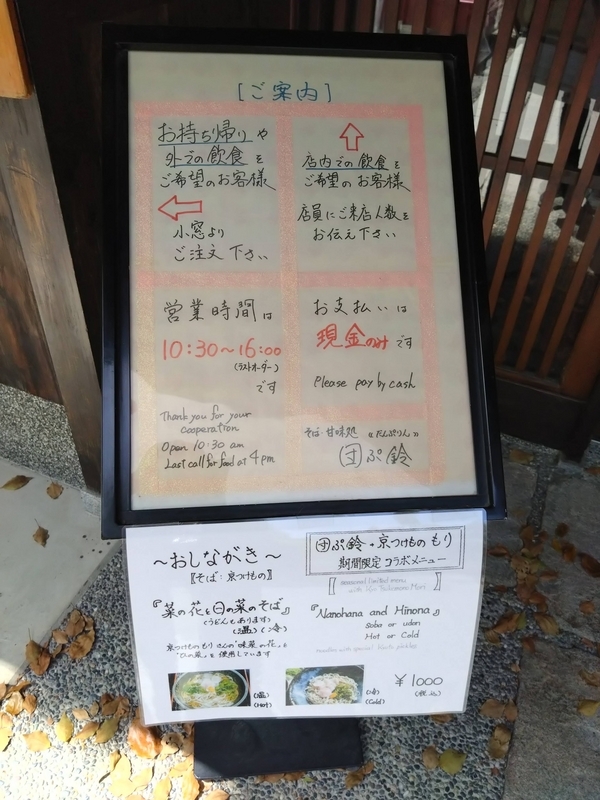 [ご案内]
お持ち帰りや
外での飲食を
ご希望のお客様
小窓より
ご注文下さい
店内での飲食を
ご希望のお客様
店員にご来店人数を
お伝え下さい
営業時間は
10:30〜16:00
(ラストオーダー)
です
Thank you for your
cooperation
Open 10:30 am
Last call for food at 4pm
お支払いは
現金のみです
Please pay by cash
そば 甘味処 《だんぷりん》
団ぷ鈴
〜おしながき〜
〖そば:京つけもの〗
『菜の花と日の菜のそば』
(うどんもあります)
(温)(冷)
京つけもの もり さんの"味菜の花"と
"ひの菜"を使用しています
(温)
(Hot)
団ぷ鈴・京つけもの もり
期間限定 コラボメニュー
seasonal limited menu
with Kyo Tsukemono Mori
『Nanohana and Hinona』
Soba or udon
Hot or Cold
noodles with special Kyoto pickles
(冷)
(Cold)
¥1000
(税込)